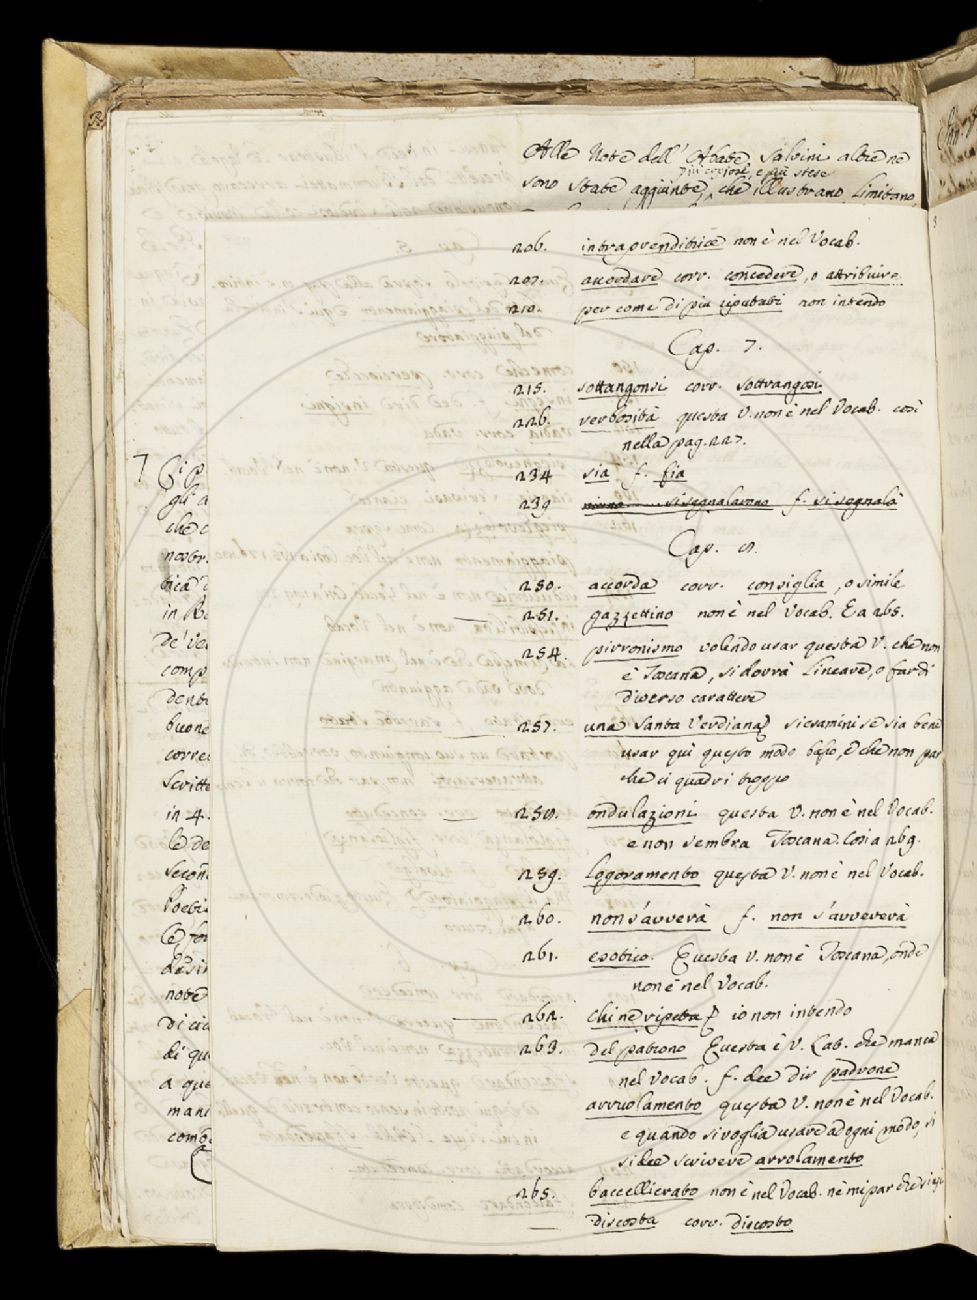 Alle Note dell'Abate Salvini altre ne
più copiose, e più stese
sono state aggiunte, che illustrano, limitano,
206. intraprenditrice non è nel Vocab.
207. accordare corr. concedere, o attribuire
210. per come di più riputati non intendo
Cap. 7.
215. sottangonsi corr. sottrangosi
226. verbosità questa V. non è nel Vocab. così
nella pag. 227.
234 sia f. fia
239 si segnalarono f. si segnalò
Cap. 8.
250. accorda corr. consiglia, o simile
251. gazzettino non è nel Vocab. E a 265.
254. pirronismo volendo usar questa V. che non
è Toscana, si dovrà lineare, o far di
diverso carattere
257. una Santa Verdiana si esamini se sia bene
usar quì questo modo basso, e che non par
che ci quadri troppo
258. ondulazioni questa V. non è nel Vocab.
e non sembra Toscana. Così a 269.
259. Logoramento questa V. non è nel Vocab.
260. non s'avverà f. non s'avvererà
261. esotico. Questa V. non è Toscana, onde
non è nel Vocab.
262. chi ne ripeta io non intendo
263. del patrono Questa è V. Lat. che manca
nel Vocab. f. dee dir padrone
arruolamento questa V. non è nel Vocab.
e quando si voglia usare ad ogni modo, si
si dee scrivere arrolamento
265. baccellierato non è nel Vocab. nè mi par che
discosta corr. discosto
7
gli
che
nostr
tica
in
De'
comp
dent
buone
corre
Scritt
in 4.
Secon
Poeti
note
di
di qu
a que
man
come